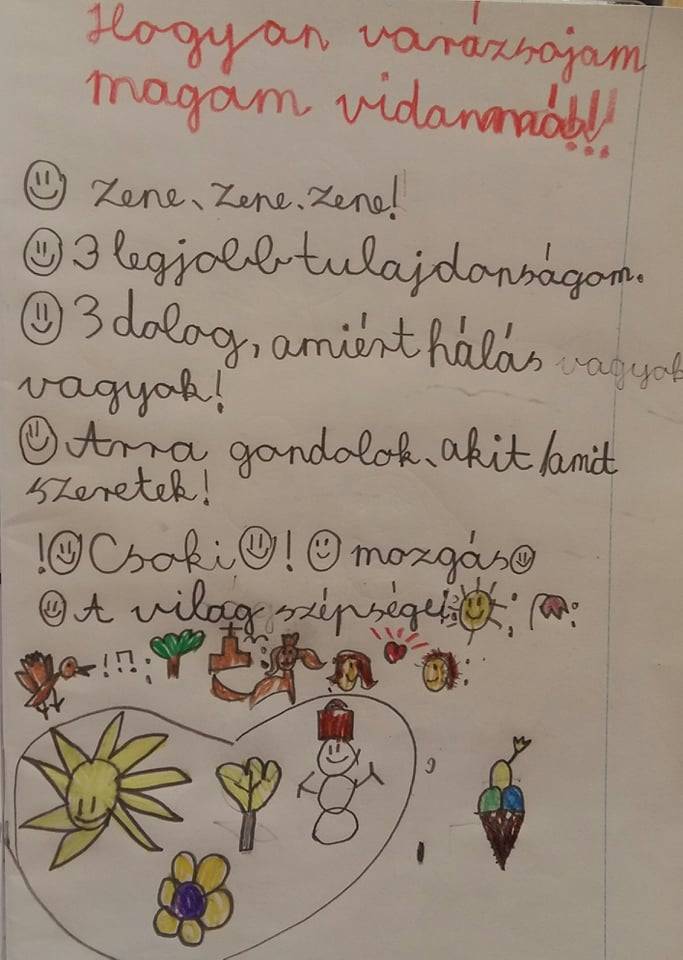 Hogyan varázsojam
magam vidammá!!!
Zene, Zene, Zene!
3 legjobb tulajdonságom.
3 dolog, amiért hálás vagyok
vagyok!
Arra gondolok, akit/amit
szeretek!
! Csoki ! mozgás
A világ szépségei: